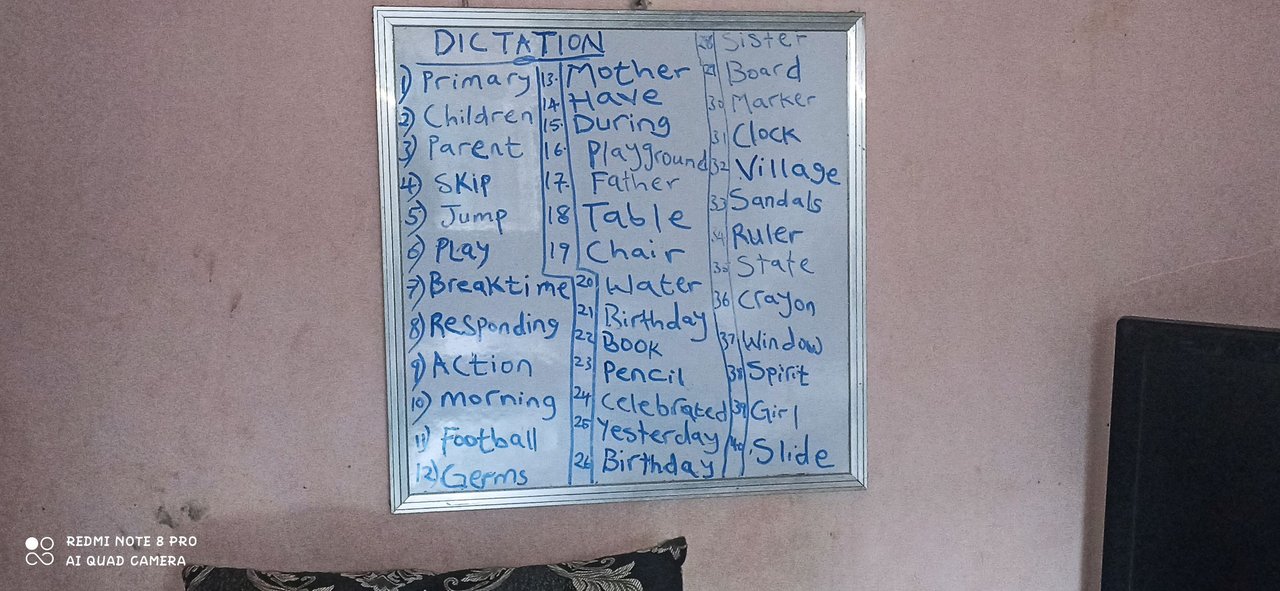 DICTATION
1) Primary
2) Children
3) Parent
4) Skip
5) Jump
6) Play
7) Breaktime
8) Responding
9) Action
10) morning
11) Football
12) Germs
13. Mother
14. Have
15. During
16. Playground
17. Father
18 Table
19 Chair
20 Water
21 Birthday
22 Book
23 Pencil
24 Celebrated
25 Yesterday
26 Birthday
28 Sister
29 Board
30 Marker
31 Clock
32 Village
33 Sandals
34 Ruler
35 State
36 Crayon
37 Window
38 Spirit
39 Girl
40. Slide
REDMI NOTE 8 PRO
AI QUAD CAMERA